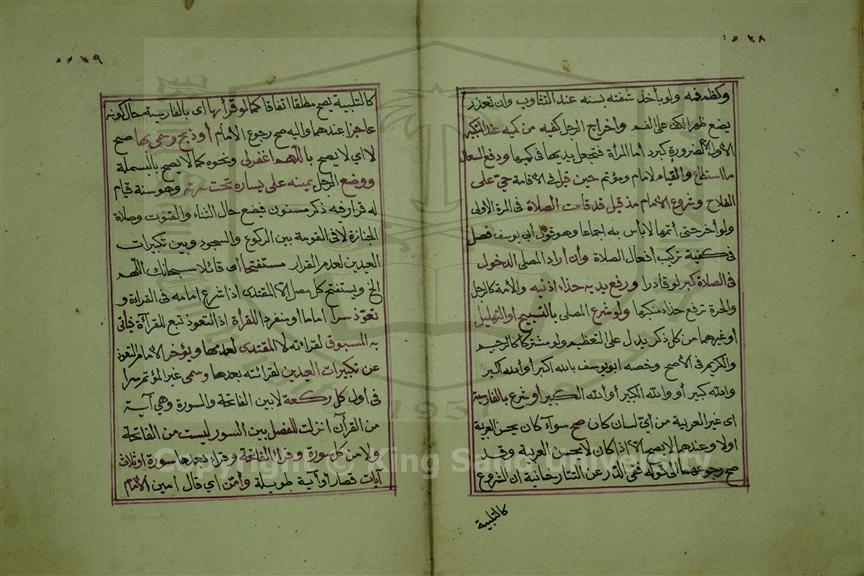 ٣٨
وكظم فمه ولو بأخذ شفته بسنه عند التثاؤب وان تعذر
يضع ظهر الكف على الفم واخراج الرجل كفيه من كميه عند التكبير
الأول الا لضرورة كبرد أما المرأة فتجعل يديها في كميها ودفع السعال
ما استطاع والقيام لامام ومؤتم حين قيل في الاقامة حي على
الفلاح وشروع الامام مذ قيل قد قامت الصلاة في المرة الأولى
ولو أخر حتى أتمها لا بأس به اجماعا وهو قول ابي يوسف فصل
في كيفية تركيب أفعال الصلاة وان أراد المصلي الدخول
في الصلاة كبر لو قادرا ورفع يديه حذاء اذنيه والأمة كالرجل
والحرة ترفع حذاء منكبها ولو شرع المصلي بالتسبيح أو التهليل
أو غيرهما من كل ذكر يدل على التعظيم ولو مشتركا كالرحيم
والكريم في الأصح وخصه ابو يوسف بالله أكبر أو الله أكبر
والله كبير أو والله أكبر أو الله الكبير أو شرع بالفارسية
اى غير العربية من أي لسان كان صح سواء كان يحسن العربية
أولا وعندهما لا يصح الا اذا كان لا يحسن العربية وقد
صح رجوعهما الى قوله ففي الدر عن التتارخانية ان الشروع
كالتلبية
٣٩
كالتلبية يصح مطلقا اتفاقا كما لو قرأ بها اى بالفارسية حال كونه
عاجزا عندهما واليه صح رجوع الامام أو ذبح وسمى بها صح
لا اى لا يصح باللهم اغفر لي ونحوه كما لا يصح بالبسملة
ووضع الرجل يمينه على يساره تحت سرته وهو سنة قيام
له قرار فيه ذكر مسنون فيضع حال الثناء والقنوت وصلاة
الجنازة لا في القومة بين الركوع والسجود وبين تكبيرات
العيدين لعدم القرار مستفتحا أى قائلا سبحانك اللهم
الخ ويستفتح كل مصل الا المقتدى اذا شرع امامه في القراءة و
تعوذ سرا اماما أو منفردا للقرأة اذ التعوذ تبع للقرآءة فيأتي
به المسبوق لقراءته لا المقتدى لعدمها ويؤخر الامام التعوذ
عن تكبيرات العيدين لقرائته بعدها وسمى غير المؤتم سرا
في أول كل ركعة لا بين الفاتحة والسورة وهي آية
من القرآن انزلت للفصل بين السور ليست من الفاتحة
ولا من كل سورة وقراء الفاتحة وقراء بعدها سورة أو ثلاث
آيات قصار أو آية طويلة وأمن اي قال أمين الامام
Copyright © King Saud University
1957